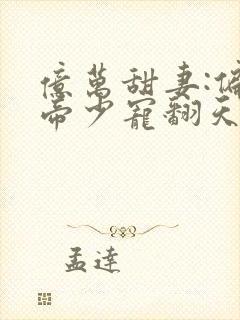 億萬甜妻:偏
帝少寵翻天
孟達